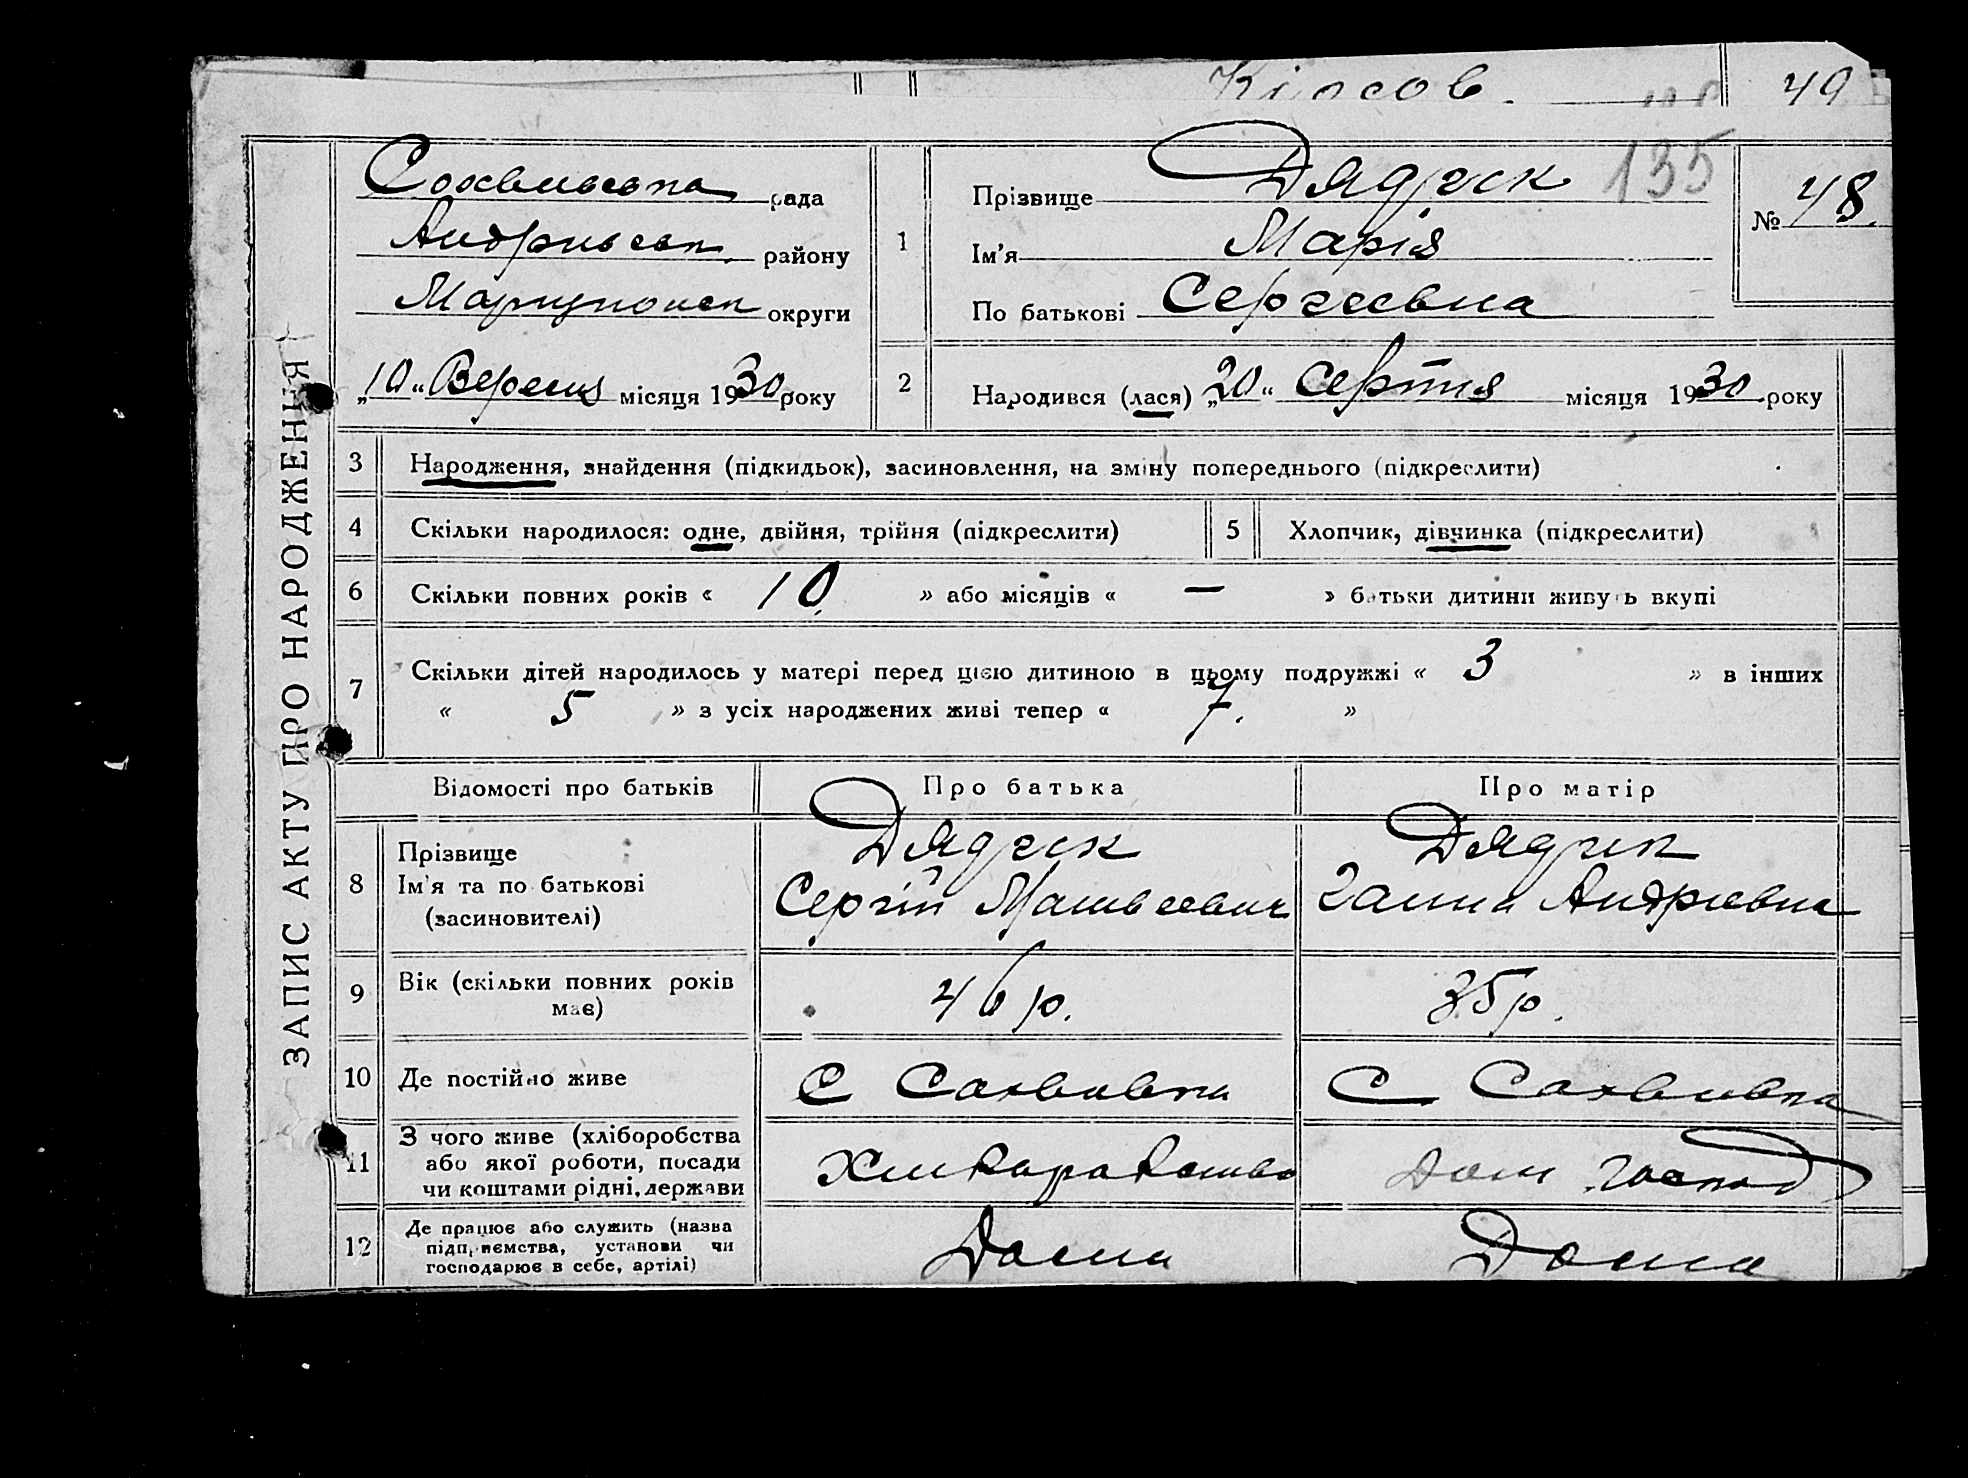 49
ЗАПИС АКТУ ПРО НАРОДЖЕННЯ
рада
району
Маріупольськ округи
„10“ Вересня місяця 1930 року
1
Прізвище Дядчек 135
Ім'я Марія
По батькові Сергеевна
№ 48.
2
Народився (лася) „20“ Серпня місяця 1930 року
3 Народження, знайдення (підкидьок), засиновлення, на зміну попереднього (підкреслити)
4 Скільки народилося: одне, двійня, трійня (підкреслити) 5 Хлопчик, дівчинка (підкреслити)
6 Скільки повних років « 10 » або місяців « — » батьки дитини живуть вкупі
7 Скільки дітей народилось у матері перед цією дитиною в цьому подружжі « 3 » в інших
« 5 » з усіх народжених живі тепер « 7. »
Відомості про батьків Про батька Про матір
8 Прізвище Дядчек Дядчек
Ім'я та по батькові Сергій Матвеевич Ганна Андріевна
(засиновителі)
9 Вік (скільки повних років має) 46 р. 35 р.
10 Де постійно живе С С
11 З чого живе (хліборобства або якої роботи, посади чи коштами рідні, держави Хліборобство Дом. господ
12 Де працює або служить (назва підприємства, установи чи господарює в себе, артілі) Дома Дома